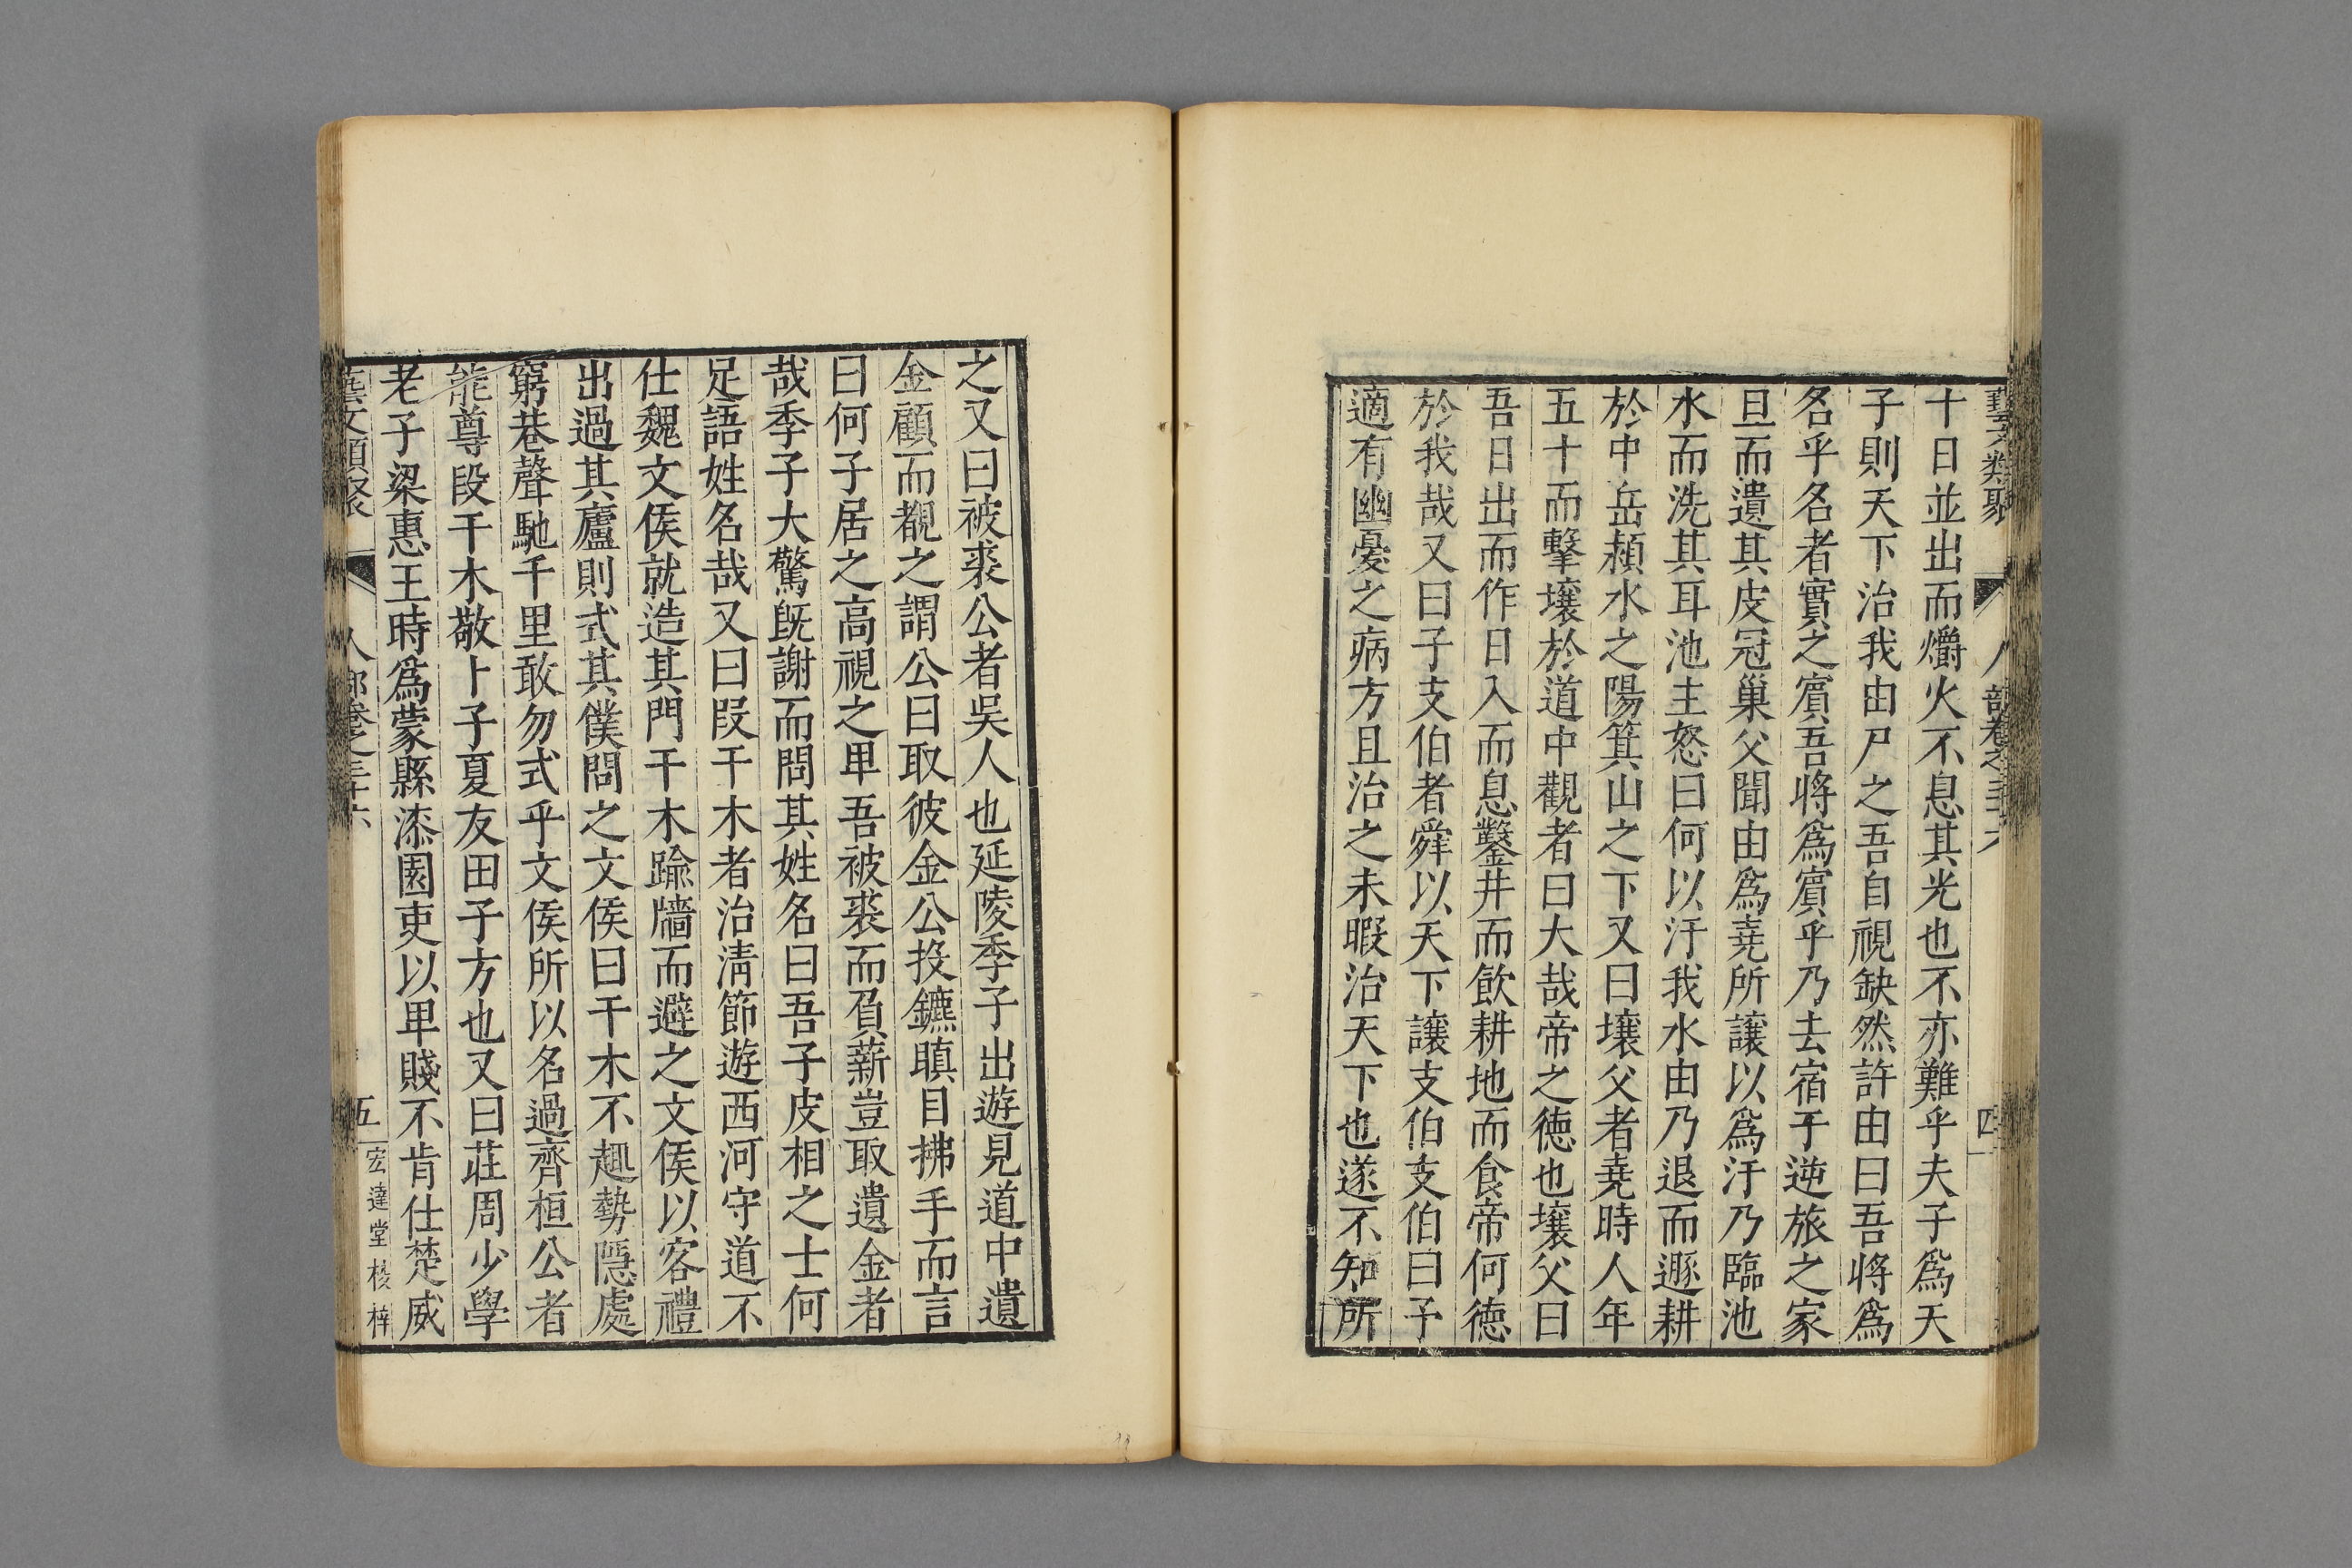 藝文類聚 人部卷之三十六 四
十日並出而爝火不息其光也不亦難乎夫子爲天
子則天下治我由尸之吾自視缺然許由曰吾將爲
名乎名者實之賔吾將爲賔乎乃去宿于逆旅之家
旦而遺其皮冠巢父聞由爲堯所讓以爲汙乃臨池
水而洗其耳池主怒曰何以汙我水由乃退而遯耕
於中岳潁水之陽箕山之下又曰壤父者堯時人年
五十而擊壤於道中觀者曰大哉帝之德也壤父曰
吾日出而作日入而息鑿井而飲耕地而食帝何德
於我哉又曰子支伯者舜以天下讓支伯支伯曰予
適有幽憂之病方且治之未暇治天下也遂不知所
之又曰被裘公者吳人也延陵季子出遊見道中遺
金顧而覩之謂公曰取彼金公投鑣瞋目拂手而言
曰何子居之高視之卑吾被裘而負薪豈取遺金者
哉季子大驚旣謝而問其姓名曰吾子皮相之士何
足語姓名哉又曰段干木者治清節遊西河守道不
仕魏文侯就造其門干木踰牆而避之文侯以客禮
出過其廬則式其僕問之文侯曰干木不趣勢隱處
窮巷聲馳千里敢勿式乎文侯所以名過齊桓公者
能尊段干木敬卜子夏友田子方也又曰莊周少學
老子梁惠王時爲蒙縣漆園吏以卑賤不肯仕楚威
藝文類聚 人部卷之三十六 五 宏達堂校梓